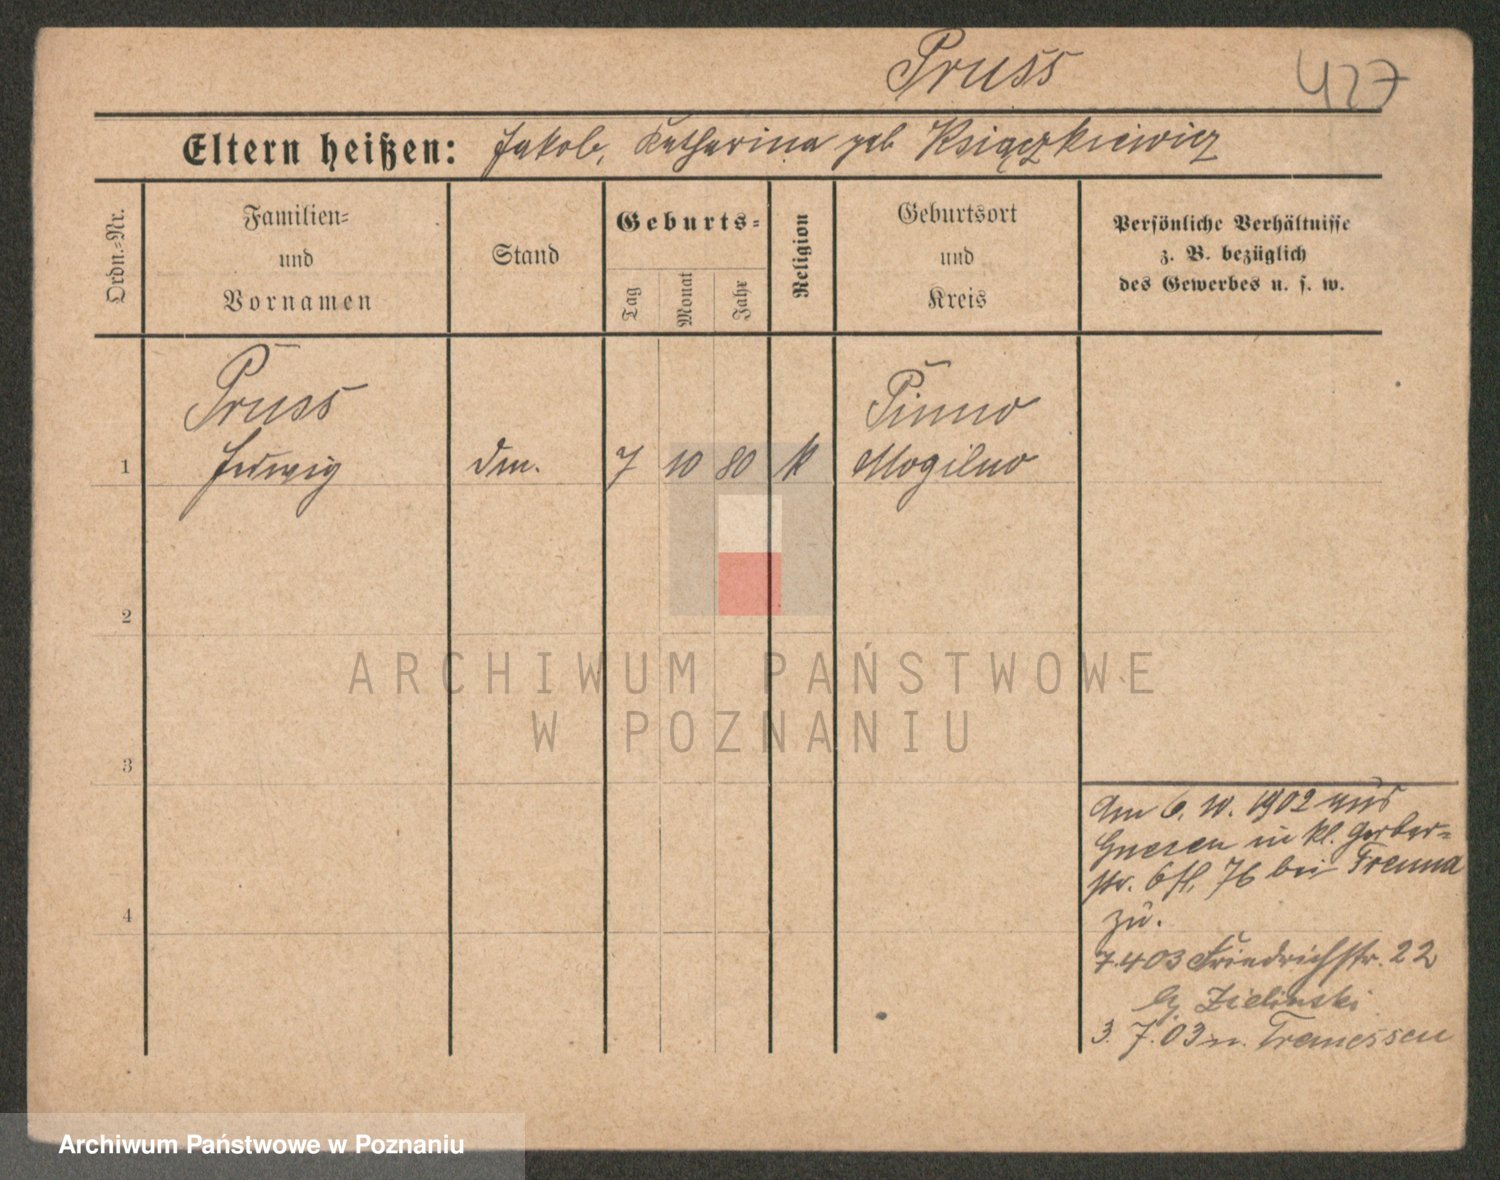 Pruss
427
Eltern heißen: Jakob, Katharina geb Książkiewicz
Ordn.=Nr.
Familien=
und
Vornamen
Stand
Geburts=
Tag
Monat
Jahr
Religion
Geburtsort
und
Kreis
Persönliche Verhältnisse
z. B. bezüglich
des Gewerbes u. s. w.
Pruss
1 Hedwig 7 10 80 k Mogilno
2
3
4
Am 6. 10. 1902 aus
Gnesen in kl. Gerber=
str. 6 76 bei
zu.
7.4 03 Friedrichstr. 22
Zielinski
3. 7. 03 n. Tremessen
ARCHIWUM PAŃSTWOWE
W POZNANIU
Archiwum Państwowe w Poznaniu